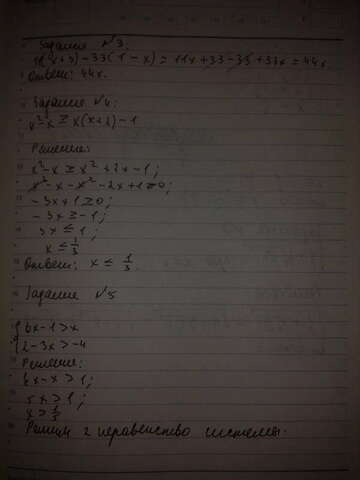 Задание №3:
11(x+3)-33(1-x)=11x+33-33+33x=44x
Ответ: 44x.
Задание №4:
x²-x≥x(x+2)-1
Решение:
x²-x≥x²+2x-1;
x²-x-x²-2x+1≥0;
-3x+1≥0;
-3x≥-1;
3x≤1;
x≤1/3
Ответ: x≤1/3.
Задание №5
{6x-1>x
{2-3x>-4
Решение:
6x-x>1;
5x>1;
x>1/5
Решим 2 неравенство системы.